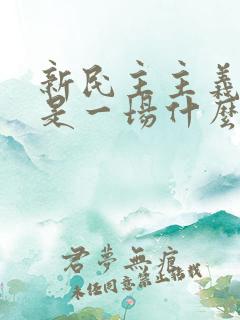 新民主主義
是一場什麼
君夢無痕
未經同意禁止轉載